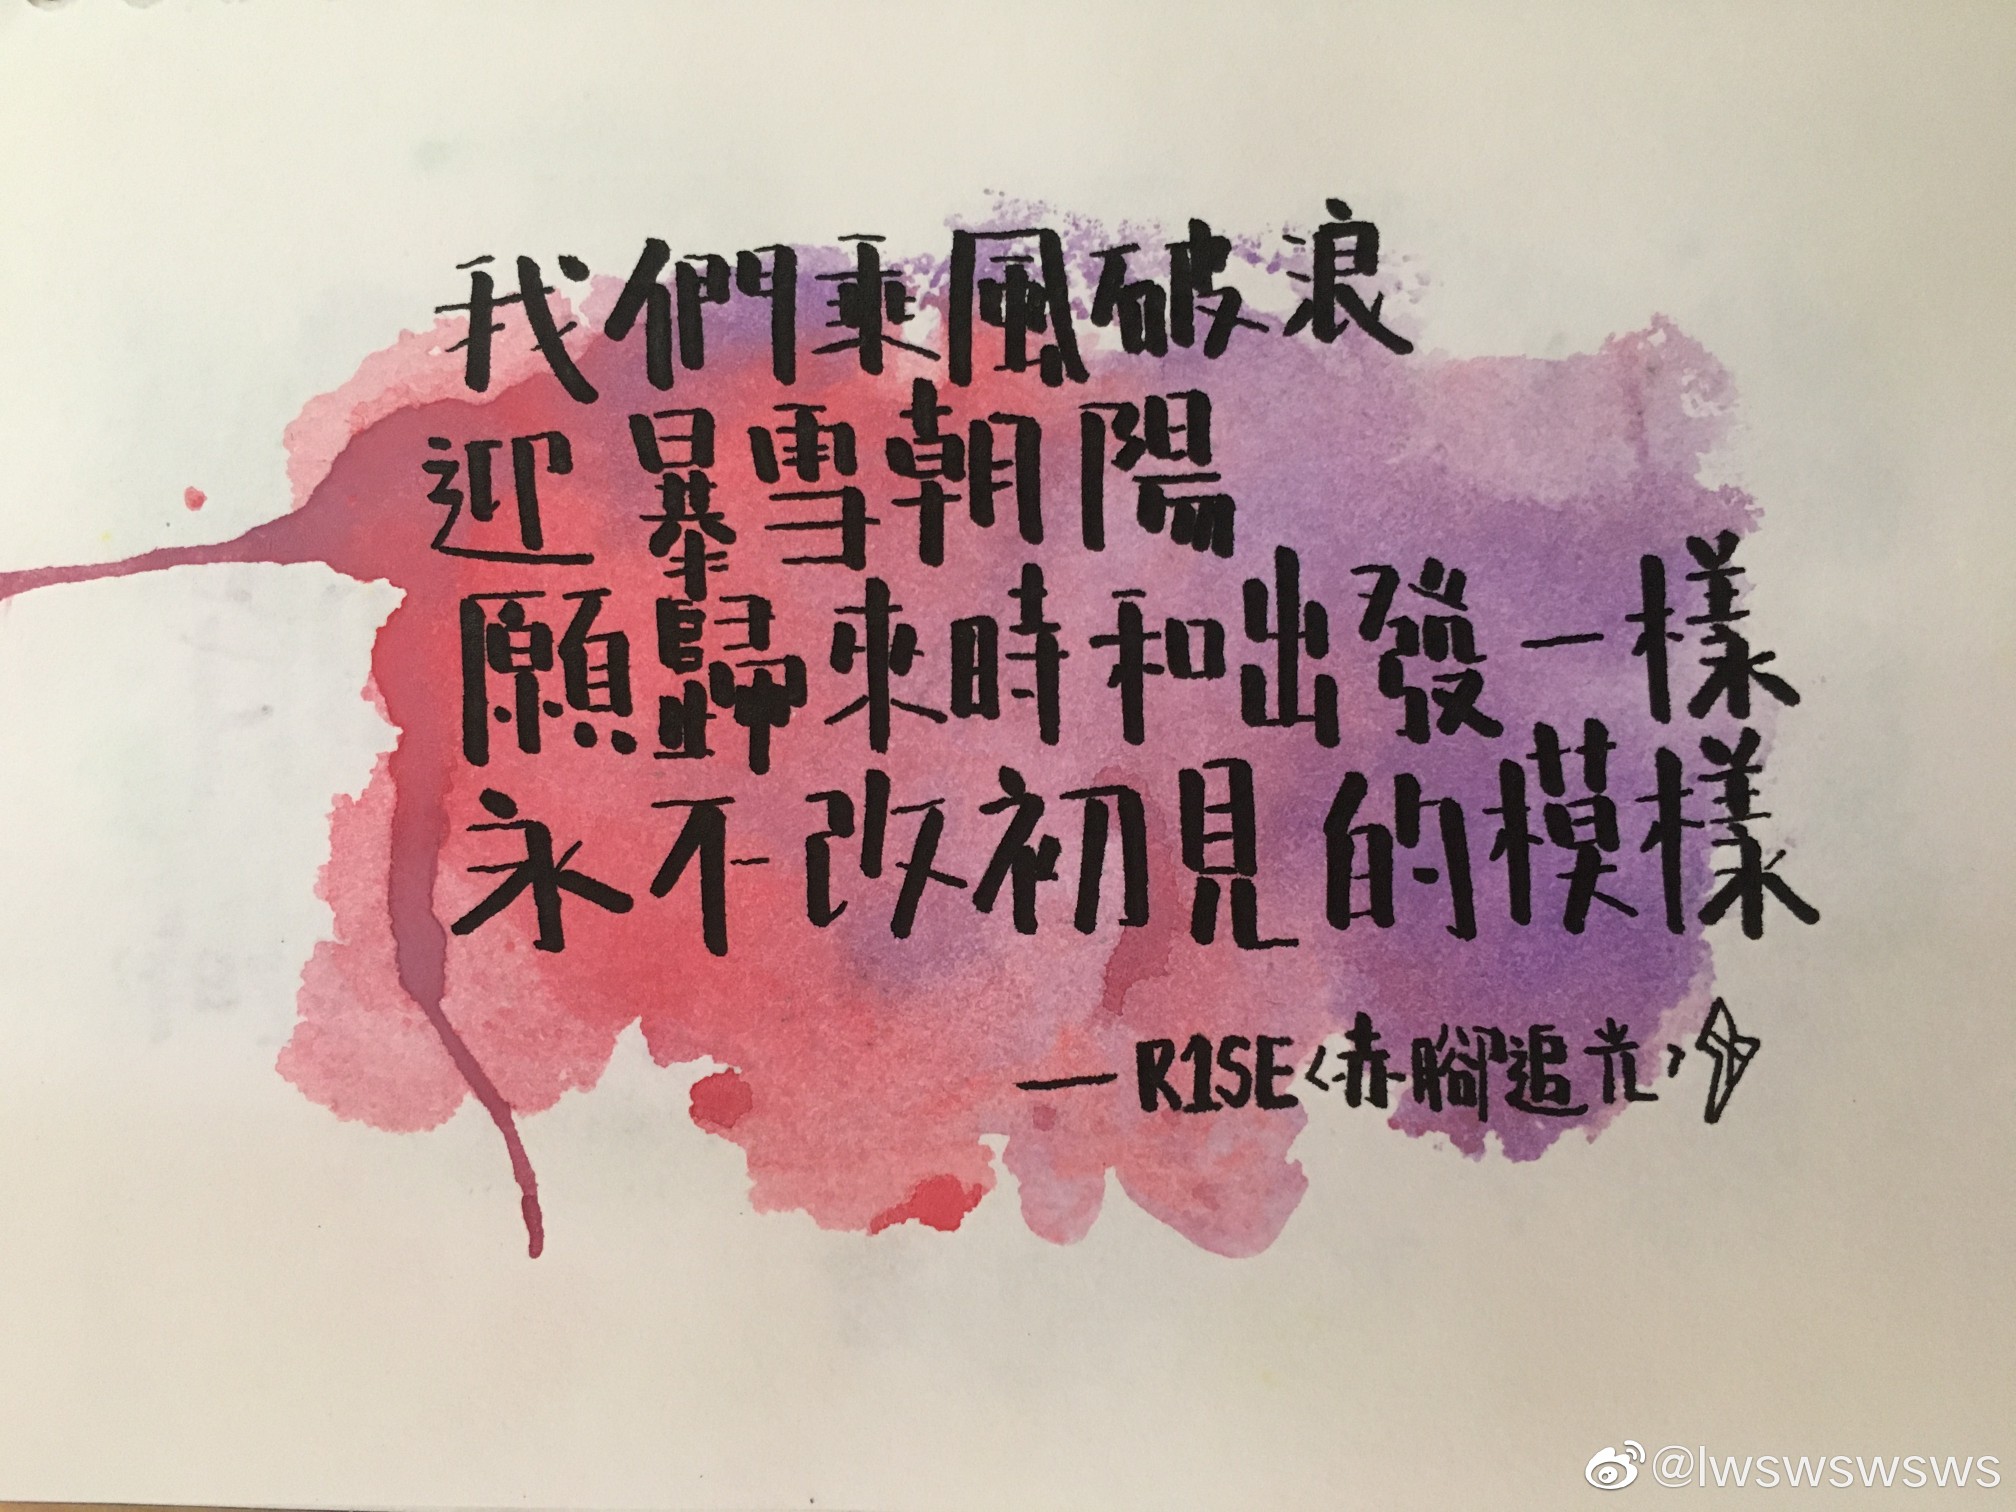 我們乘風破浪
迎暴雪朝陽
願歸來時和出發一樣
永不改初見的模樣
—R1SE〈赤腳追光〉
@lwswswsws